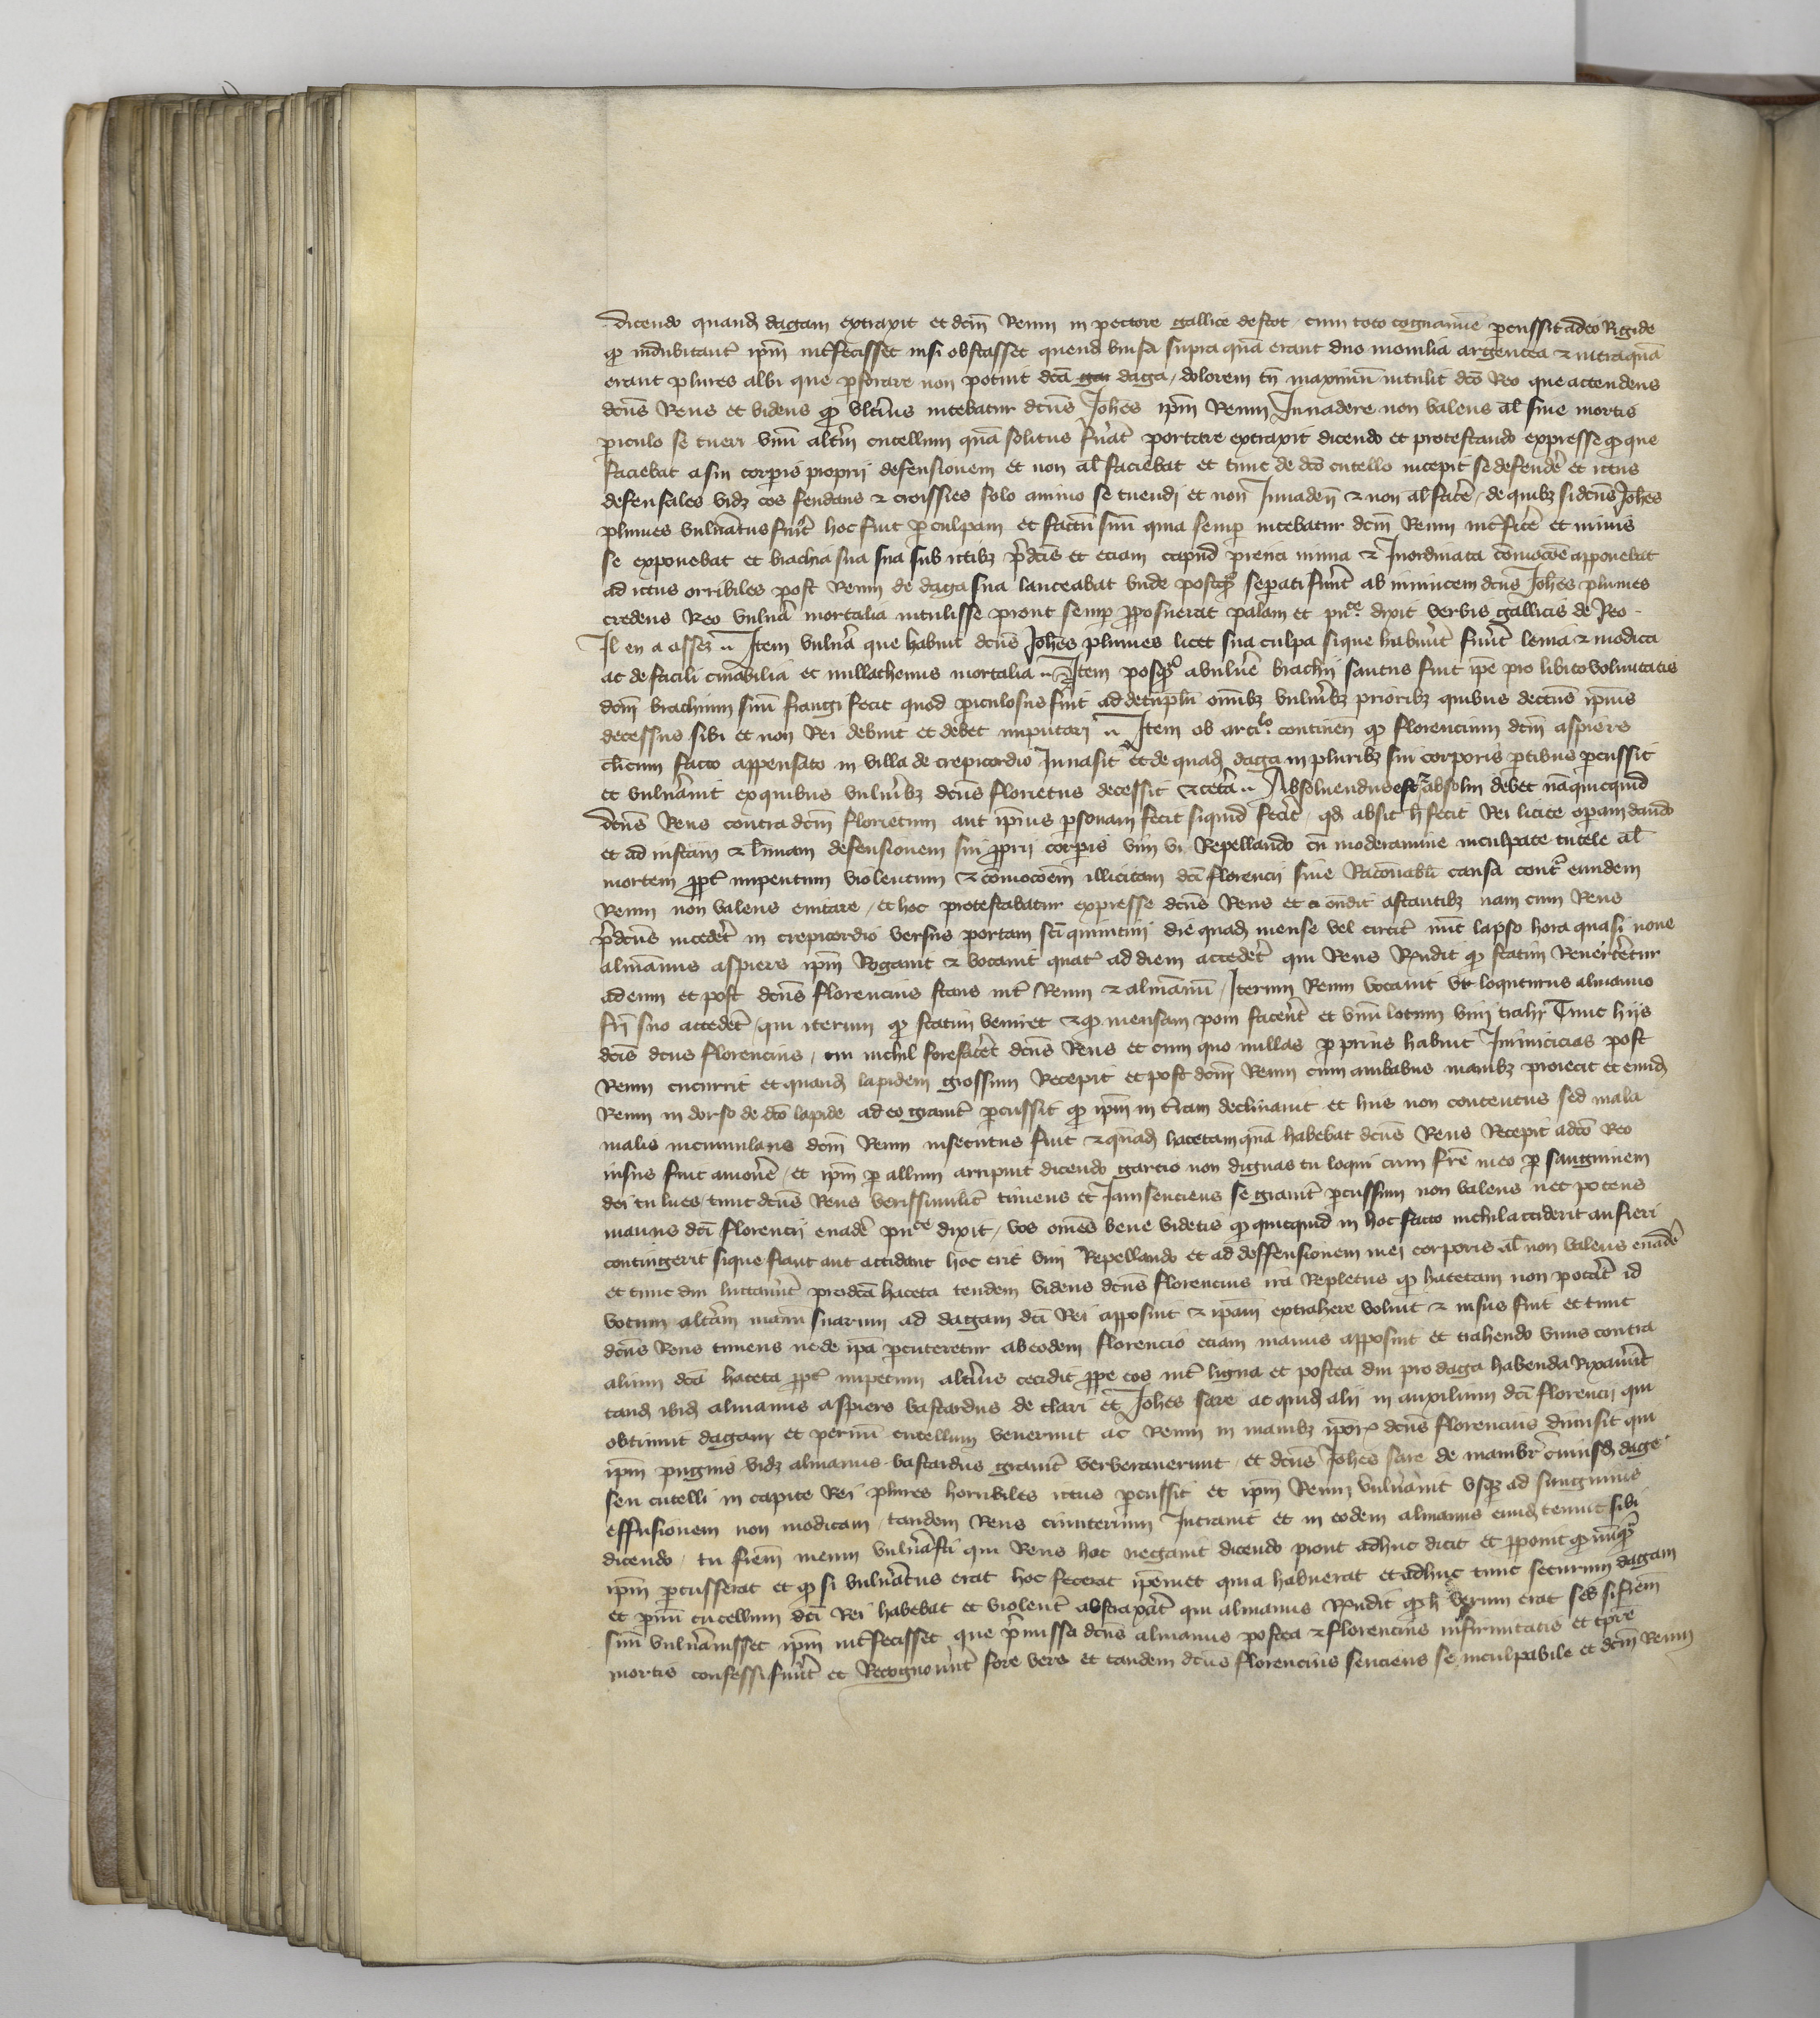 dicendo quand dagam extraxit et dcm Reum in pectore gallice destoc cum toto cognamine percussit adeo Rigide
qp indubitant ipm interfecisset nisi obstasset quend bursa supra qua erant duo monilia argentea et intra qua
erant plures albi que perforare non potuit dca daga / dolorem tn maximu intulit dco Reo que actendens
dcus Reus et videns qp ulterius nitebatur dcus Johes ipm Reum Invadere non valens al sine mortis
periculo se tueri unu altm cutellum qua solitus fuat portare extraxit dicendo et protestando expresse qp que
faciebat a sui corpis proprij defensionem et non al faciebat et tunc de dco cutello incepit se defende et ictus
defensales vidz cos fendans et croissies solo animo se tuendi et non Invaden et non al face / de quibz si dcus Johes
plumes vulnatus fuit hoc fuit per culpam et factu suu quia semp nitebatur dcm Reum interfice et nimis
se exponebat et brachia sua sua sub ictibz pdcis et eciam capud prenci nimia et Inordinata comocoe apponebat
ad ictus orribiles post Reum de daga sua lanceabat unde postqz sepati fuert ab invincem dcus Johes plumes
credens Reo vulna mortalia intulisse prout semp pposuerat palam et puce dixit verbis gallicis de Reo
Il en a assez .. Item vulna que habuit dcus Johes plumes licet sua culpa si que habuit fuert lenia et modica
ac de facili curabilia et nullathenus mortalia .. Item postqz a vulne brachij sanatus fuit ipe pro libito voluntatis
dcm brachium suu frangi fecit quod periculosus fuit ad decuplu omibz vulneribz prioribz quibus dectus ipius
decessus sibi et non Rei debuit et debet imputari .. Item ob artclo continen qp florencium dcm aspiers
clicum facto appensato in villa de crepicordio Invasit et de quad daga in pluribz sui corporis ptibus percussit
et vulnavit ex quibus vulnibz dcus florietus decessit et cetera .. Absolvendus est et absolvi debet na quicquid
dcus Reus contra dcm florietum aut ipius psonam fecit siquid fecit / qd absit h fecit Rei licite opam dando
et ad instam et ltimam defensionem sui pprij corpis vim vi Repellando cu moderamine inculpate tutele al
mortem ppt impetum violentum et comocoem illicitam dci florencij sine Raconabili causa contra eundem
Reum non valens evitare / et hoc protestabatur expresse dcus Reus et ondit astantibz nam cum Reus
pdcus incedet in crepicordio versus portam sci quintini die quad mense vel circit nuc lapso hora quasi none
almannus aspiers ipm Rogavit et vocavit quat ad diem accedet qui Reus Rndit qp statim Revertetur
ad eum et post dcus florencius stans int Reum et almanu / Iterum Reum vocavit ut loquturus almanno
fri suo accedet / qui iterum qp statim veniret et qp mensam poni facent et unu lotum vini trahi Tunc hijs
dcis dcus florencius / cui nichil forefacet dcus Reus et cum quo nullas p prius habuit Inimicicias post
Reum cucurrit et quand lapidem grossum Recepit et post dcm Reum cum ambabus manibz proiecit et eund
Reum in dorso de dco lapide adeo gravit percussit qp ipm in tram declinavit et hiis non contentus sed mala
malis incumulans dcm Reum insecutus fuit et quad hacetam qua habebat dcus Reus Recepit a dco Reo
nisus fuit amove / et ipm p allum arripuit dicendo garcio non dignas tu loqui cum fre meo p sanguinem
dei tu lues / tunc dcus Reus verissimilit timens et Iam senciens se gravit percussum non valens nec potens
manus dci florencij evade puce dixit / vos omes bene videtis qp quicquid in hoc facto nichil acciderit an fieri
contingerit si que fiant aut accidant hoc erit vim Repellando et ad deffensionem mei corporis al non valens evade
et tunc diu luctavit predca haceta tendem videns dcus florencius ira Repletus qp hacetam non potat id
votum altam manu suarum ad dagam dci Rei apposuit et ipam extrahere voluit et nisus fuit et tunc
dcus Reus timens ne de ipa percuteretur ab eodem florencio eciam manus apposuit et trahendo unus contra
alium dca haceta ppt impetum alterius cecidit ppe eos int ligna et postea diu pro daga habenda Rixavert
tand ibid almanus aspiers bastardus de clari et Johes sare ac quid alii in auxilium dci florencij qui
obtinuit dagam et pervum cutellum venerunt ac Reum in manibz ipor dcus florencius dimisit qui
ipm pugnis vidz almanus bastardus gravit verberaverunt / et dcus Johes sare de manibr cuiusd dage
seu cutelli in capite Rei plures horribiles ictus percussit et ipm Reum vulnavit usqz ad sanguinis
effusionem non modicam / tandem Reus cimiterium Intravit et in eodem almanus eund tenuit sibi
dicendo / tu frem meum vulnasti qui Reus hoc negavit dicendo prout adhuc dicit et pponit qp nuqz
ipm percusserat et qp si vulnatus erat hoc fecerat ipemet quia habuerat et adhuc tunc securum dagam
et pvuu cutellum dci Rei habebat et violent abstraxat qui almanus Rndit qp h verum erat sed si frem
suu vulnavisset ipm interfecisset que pmissa dcus almanus postea et florencius infirmitatis et tpre
mortis confessi fuert et Recognovert fore vera et tandem dcus florencius senciens se inculpabile et dcm Reum